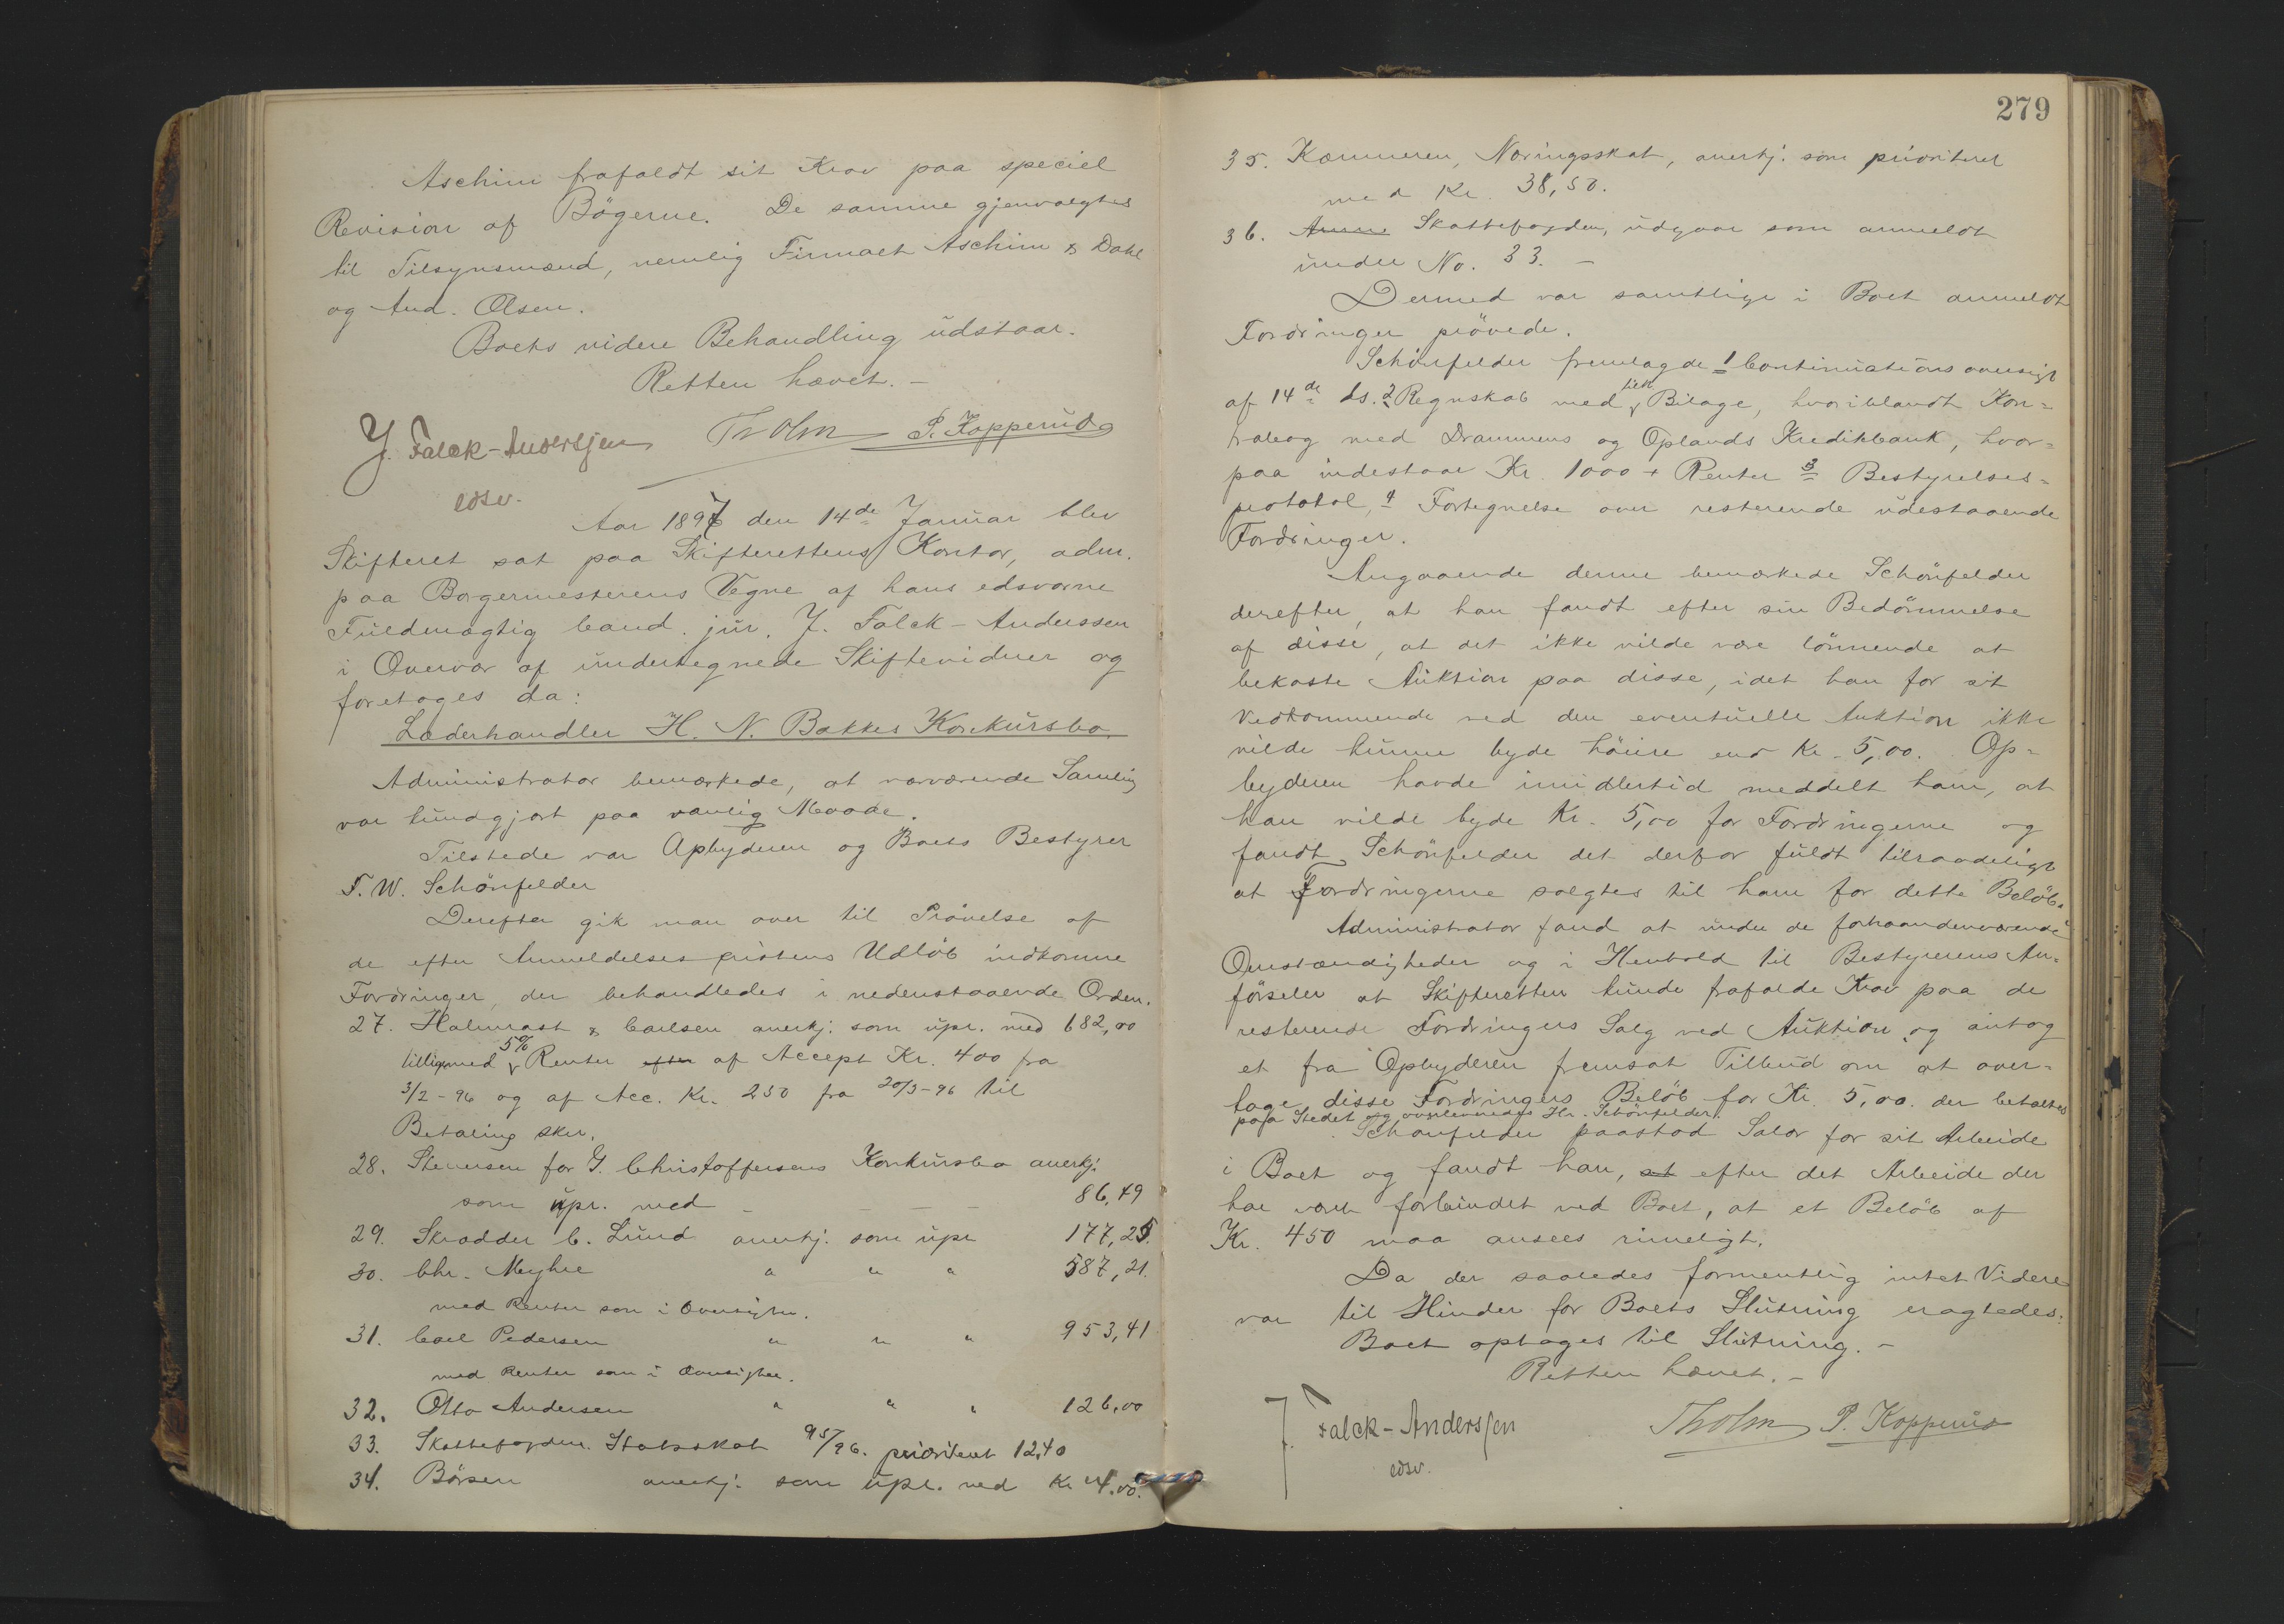 Aschim frafaldt sit Krav paa speciel
Revision af Bøgerne. De samme gjenvalgtes
til Tilsynsmænd, nemlig Firmaet Aschim & Dahl
og And. Olsen.
Boets videre Behandling udstaar.
Retten hævet. –
J. Falck-Anderssen Tholm P. Kopperud
edsv.
Aar 1897 den 14de Januar blev
Skifteret sat paa Skifterettens Kontor, adm.
paa Borgermesterens Vegne af hans edsvorne
Fuldmægtig Cand. jur. J. Falck-Anderssen
i Overvær af undertegnede Skiftevidner og
foretoges da:
Læderhandler H. N. Bakkes Konkursbo.
Administrator bemærkede, at nærværende Samling
var kundgjort paa vanlig Maade.
Tilstede var Opbyderen og Boets Bestyrer
F. W. Schönfelder
Derefter gik man over til Prøvelse af
de efter Anmeldelsesfristens Udløb indkomne
Fordringer, der behandledes i nedenstaaende Orden.
27. Halmrast & Carlsen anerkj. som upr. med 682,00
tilligemed 5% Renter efter af Accept Kr. 400 fra
3/2-96 og af Acc. Kr. 250 fra 20/3-96 til
Betaling sker.
28. Stenersen for G. Christoffersens Konkursbo anerkj.
som upr. med – – – – 86,49
29. Skrædder C. Lund anerkj. som upr 177,25.
30. Chr. Myhre " " " 587,21.
med Renter som i Oversigten.
31. Carl Pedersen " " " 953,41
med Renter som i Oversigten.
32. Otto Andersen " " " 126,00
33. Skattefogden. Statsskat 95/96. prioriteret 12,40
34. Börsen anerkj. som upr. med Kr 4.00.
279
35. Kæmneren, Næringsskat, anerkj. som prioriteret
med Kr. 38,50.
36. Skattefogden, udgaar som anmeldt
under No. 33. –
Dermed var samtlige i Boet anmeldte
Fordringer prøvede.
Schönfelder fremlagde 1 Continuationsoversigt
af 14de ds. 2 Regnskab med Bilage, hvoriblandt Kon-
trabog med Drammens og Oplands Kreditbank, hvor-
paa indestaar Kr. 1000 + Renter 3 Bestyrelses-
protokol, 4 Fortegnelse over resterende udestaaende
Fordringer.
Angaaende denne bemærkede Schönfelder
derefter, at han fandt efter sin Bedømmelse
af disse, at det ikke vilde være lønnende at
bekoste Auktion paa disse, idet han for sit
Vedkommende ved den eventuelle Auktion ikke
vilde kunne byde høiere end Kr. 5,00. Op-
byderen havde imidlertid meddelt ham, at
han vilde byde Kr. 5,00 for Fordringerne og
fandt Schönfelder det derfor fuldt tilraadeligt
at Fordringerne solgtes til ham for dette Beløb.
Administrator fand at under de forhaandenværende
Omstændigheder og i Henhold til Bestyrerens An-
førseler at Skifteretten kunde frafalde Krav paa de
resterende Fordringers Salg ved Auktion og antog
et fra Opbyderen fremsat Tilbud om at over-
tage disse Fordringers Beløb for Kr. 5,00. der betaltes
paa Stedet og overleveredes Hr. Schönfelder.
Schönfelder paastod Salær for sit Arbeide
i Boet og fandt han, at efter det Arbeide der
har været forbundet ved Boet, at et Beløb af
Kr. 450 maa ansees rimeligt.
Da der saaledes formentlig intet Videre
var til Hinder for Boets Slutning eragtedes:
Boet optages til Slutning. –
Retten hævet. –
J. Falck-Anderssen Tholm P. Kopperud
edsv.